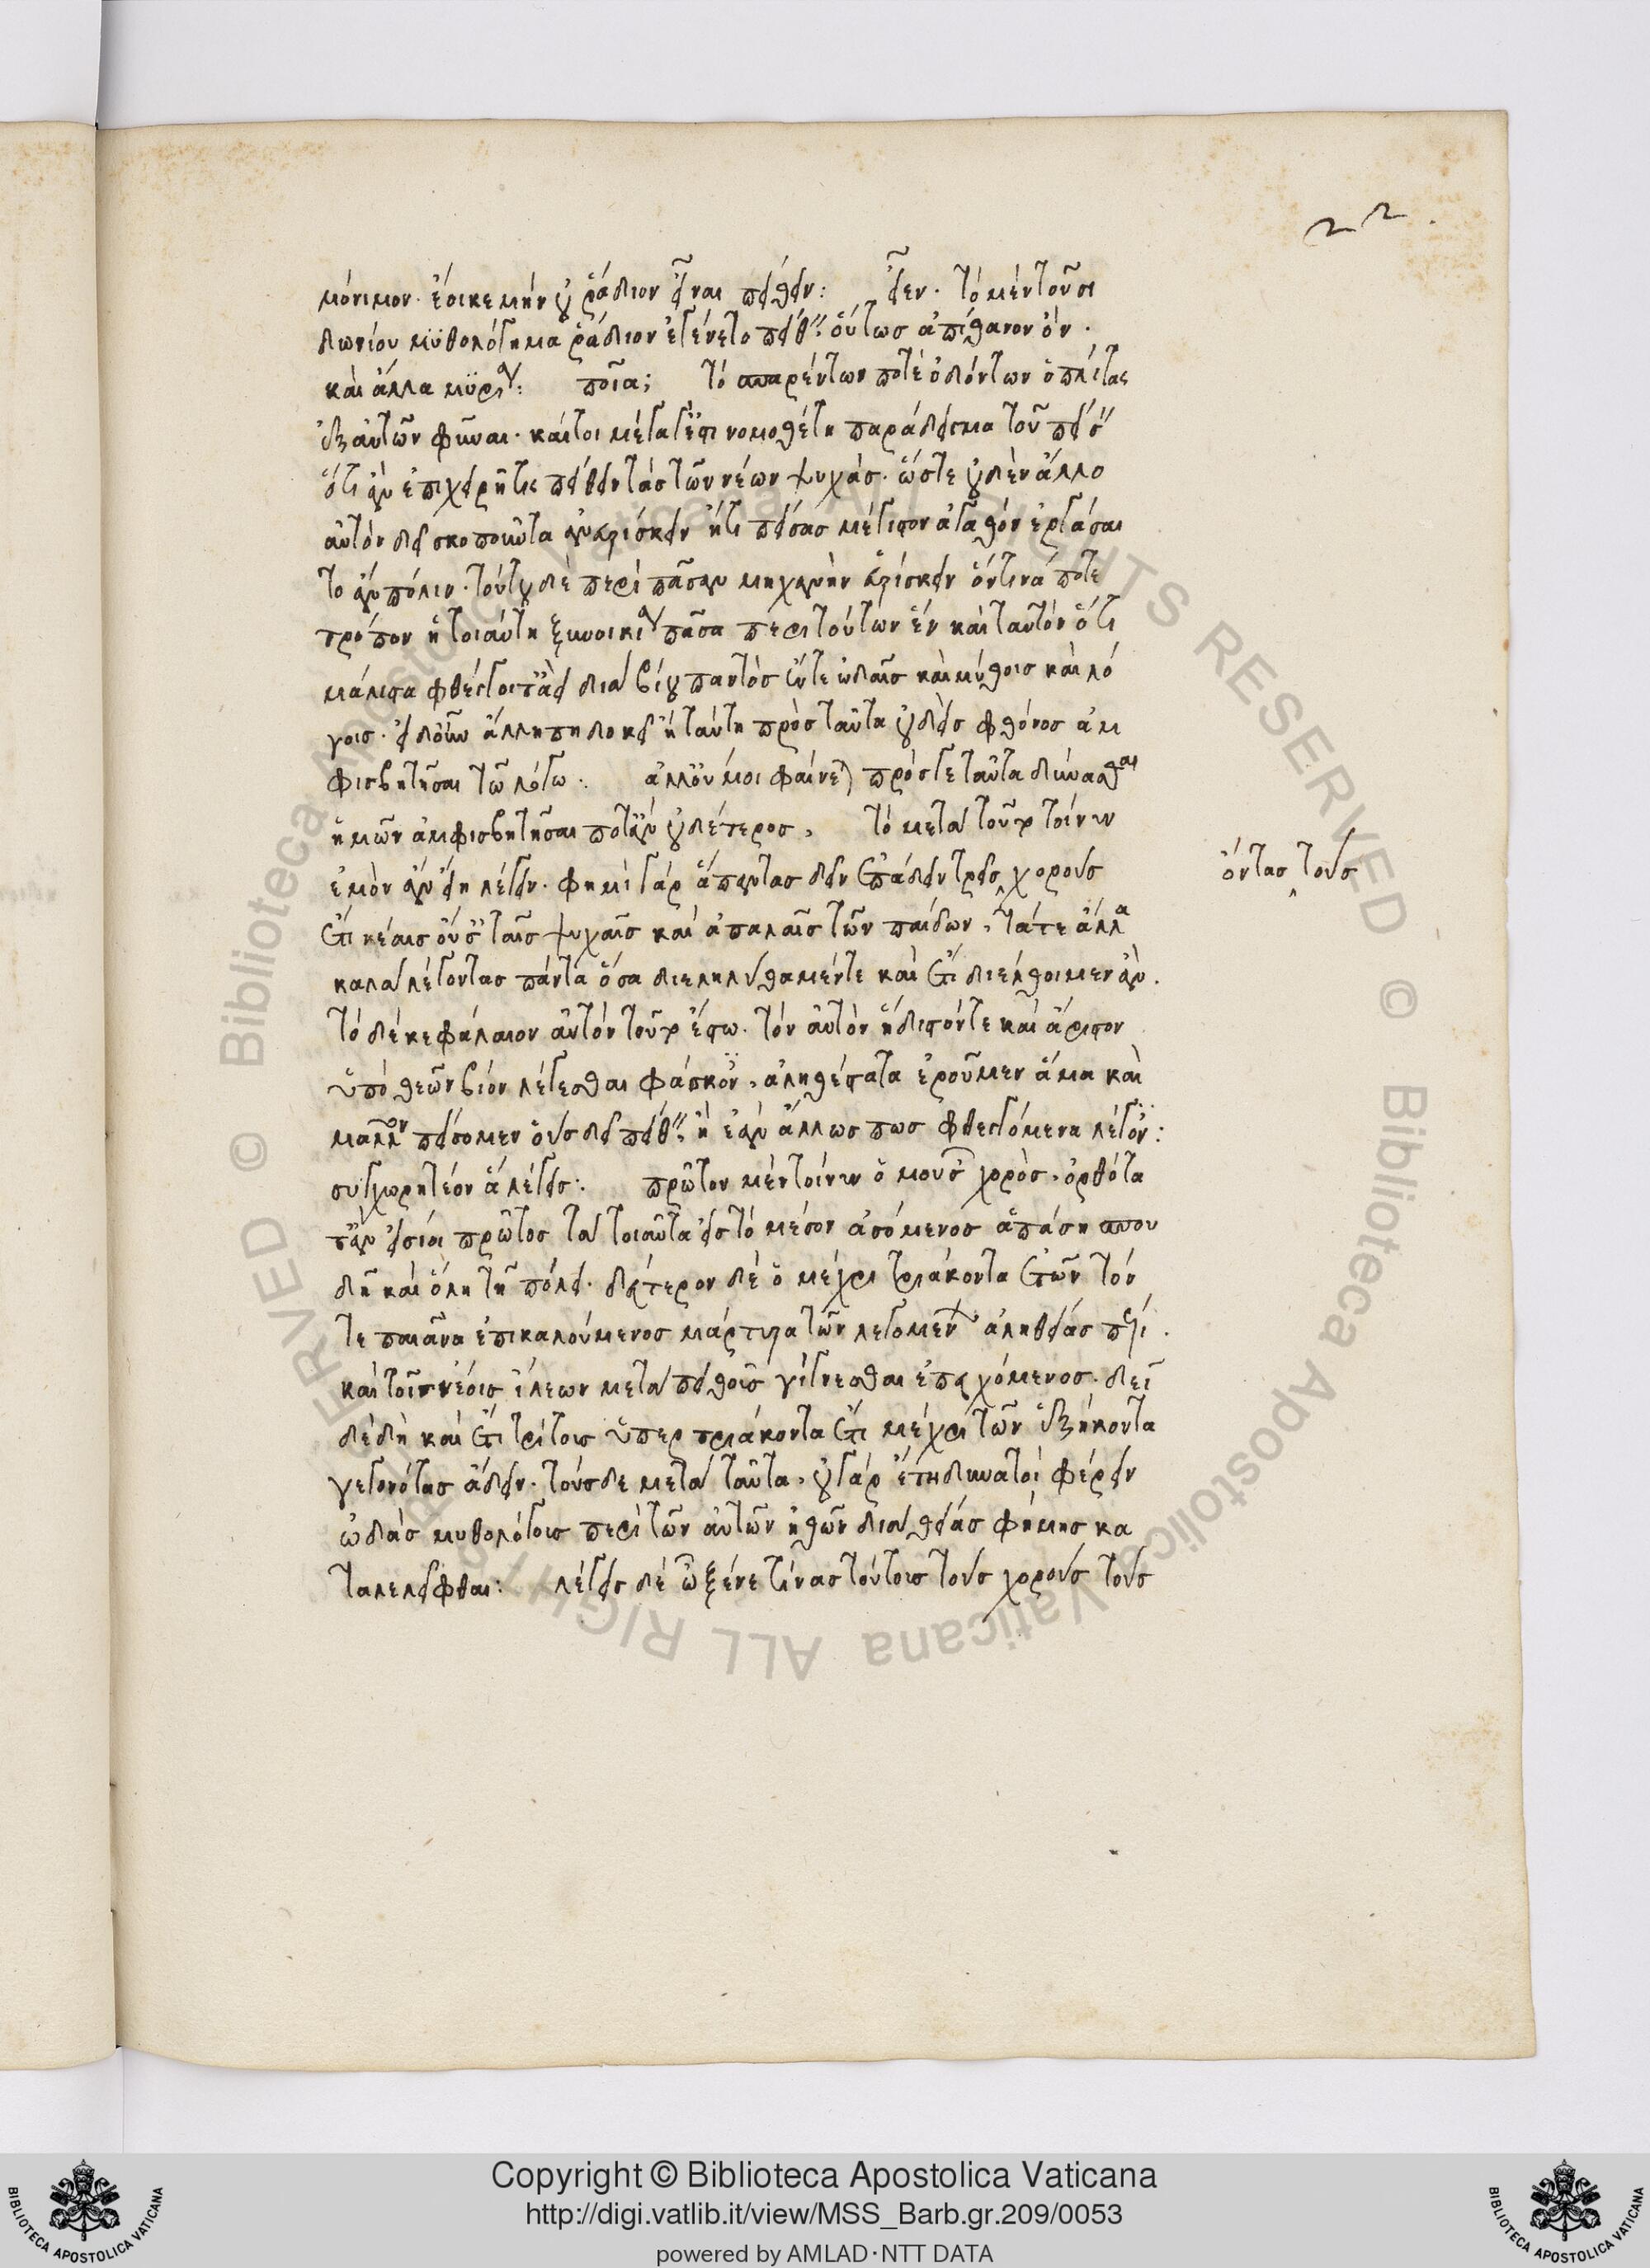 22.
μόνιμον. ἔοικε μὴν οὐ ῥάδιον εἶναι πείθειν: εἶεν. τὸ μὲν τοῦ σι
δωνίου μυθολόγημα ῥάδιον ἐγένετο πείθειν οὕτωσ ἀπίθανον ὄν.
καὶ ἄλλα μυρία: ποῖα; τὸ σπαρέντων ποτὲ ὀδόντων ὁπλίτας
ἐξ αὐτῶν φῦναι. καίτοι μέγα γ' ἐστι νομοθέτη παράδειγμα τοῦ πείσειν
ὅτι ἂν ἐπιχειρῆ τις πείθειν τὰσ τῶν νέων ψυχάσ. ὥστε οὐδὲν ἄλλο
αὐτὸν δεῖ σκοποῦντα ἀνευρίσκειν ἢ τί πείσασ μέγιστον ἀγαθὸν ἐργάσαι
το ἂν πόλιν. τούτου δὲ πέρι πᾶσαν μηχανὴν εὑρίσκειν ὅντινά ποτε
τρόπον ἡ τοιαύτη ξυνοικία πᾶσα περὶ τούτων ἓν καὶ ταυτὸν ὅτι
μάλιστα φθέγγοιτ' ἀεὶ διὰ βίου παντὸσ ἔν τε ὠδαῖσ καὶ μύθοισ καὶ λό
γοισ. εἰ δ' οὖν ἄλλη πη δοκεῖ ἢ ταύτη πρὸσ ταῦτα οὐδεὶσ φθόνοσ ἀμ
φισβητῆσαι τῶ λόγω: ἀλλ' οὔ μοι φαίνεται πρόσ γε ταῦτα δύνασθαι
ἡμῶν ἀμφισβητῆσαι ποτ' ἂν οὐδέτεροσ. τὸ μετὰ τοῦτο τοίνυν
ἐμὸν ἂν εἴη λέγειν. φημὶ γὰρ ἅπαντασ δεῖν ἐπάδειν τρεῖσ χοροὺσ
ὄντασ τοὺσ
ἔτι νέαισ οὔσαισ ταῖσ ψυχαῖσ καὶ ἁπαλαῖσ τῶν παίδων, τά τε ἄλλα
καλὰ λέγοντασ πάντα ὅσα διεληλύθαμέν τε καὶ ἔτι διέλθοιμεν ἄν.
τὸ δὲ κεφάλαιον αὐτὸν τοῦτο ἔστω. τὸν αὐτὸν ἥδιστόν τε καὶ ἄριστον
ὑπὸ θεῶν βίον λέγεσθαι φάσκοντες, ἀληθέστατα ἐροῦμεν ἅμα καὶ
μᾶλλον πείσομεν οὓσ δεῖ πείθειν ἢ ἐὰν ἄλλωσ πωσ φθεγγόμενα λέγοντες:
συγχωρητέον ἃ λέγεισ: πρῶτον μὲν τοίνυν ὁ μουσῶν χορὸσ. ὀρθότα
τ' ἂν εἰσίοι πρῶτοσ τὰ τοιαῦτα εἰσ τὸ μέσον ἀσόμενοσ ἁπάση σπου
δῆ καὶ ὅλη τῆ πόλει. δεύτερον δὲ ὁ μέχρι τριάκοντα ἐτῶν τόν
τε παιᾶνα ἐπικαλούμενοσ μάρτυρα τῶν λεγομένων ἀληθείασ πέρι.
καὶ τοῖσ νέοισ ἵλεων μετὰ πειθοῦς γίγνεσθαι ἐπευχόμενοσ. δεῖ
δὲ δὴ καὶ ἔτι τρίτουσ ὑπερ τριάκοντα ἔτι μέχρι τῶν ἑξήκοντα
γεγονότασ ἄδειν. τοὺσ δε μετὰ ταῦτα, οὐ γὰρ ἔτι δυνατοὶ φέρειν
ὠδὰσ μυθολόγουσ περὶ τῶν αὐτῶν ἠθῶν διὰ θείασ φήμησ κα
ταλελεῖφθαι: λέγεισ δὲ ὦ ξένε τίνασ τούτουσ τοὺσ χοροὺσ τοὺσ
Copyright © Biblioteca Apostolica Vaticana
http://digi.vatlib.it/view/MSS_Barb.gr.209/0053
powered by AMLAD·NTT DATA